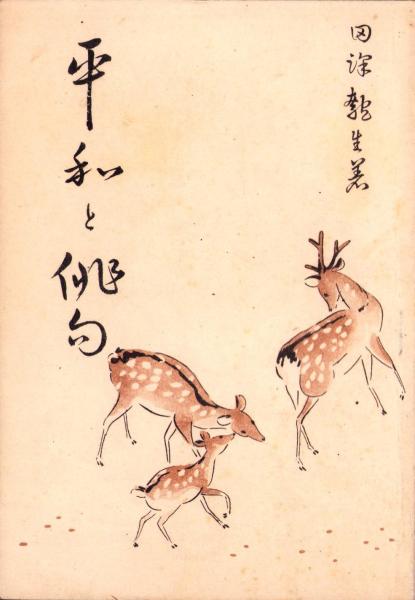 田 生著
平和と俳句